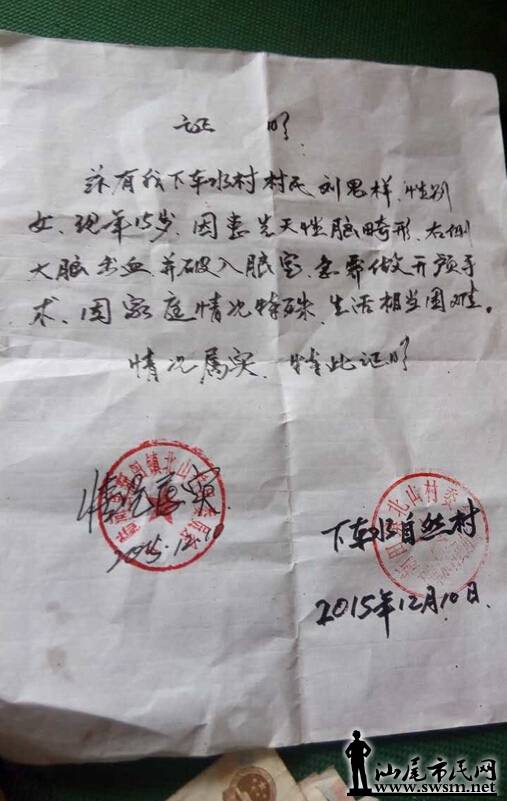 证 明
兹有我下车水村村民刘思样,性别
女、现年15岁、因患先天性脑畸形、右侧
大脑出血并破入脑室,急需做开颅手
术、因家庭情况特殊、生活相当困难。
情况属实、特此证明
镇北山村
情况属实
2015.12.10
北山村委
下车水自然村
2015年12月10日
汕尾市民网
www.swsm.net